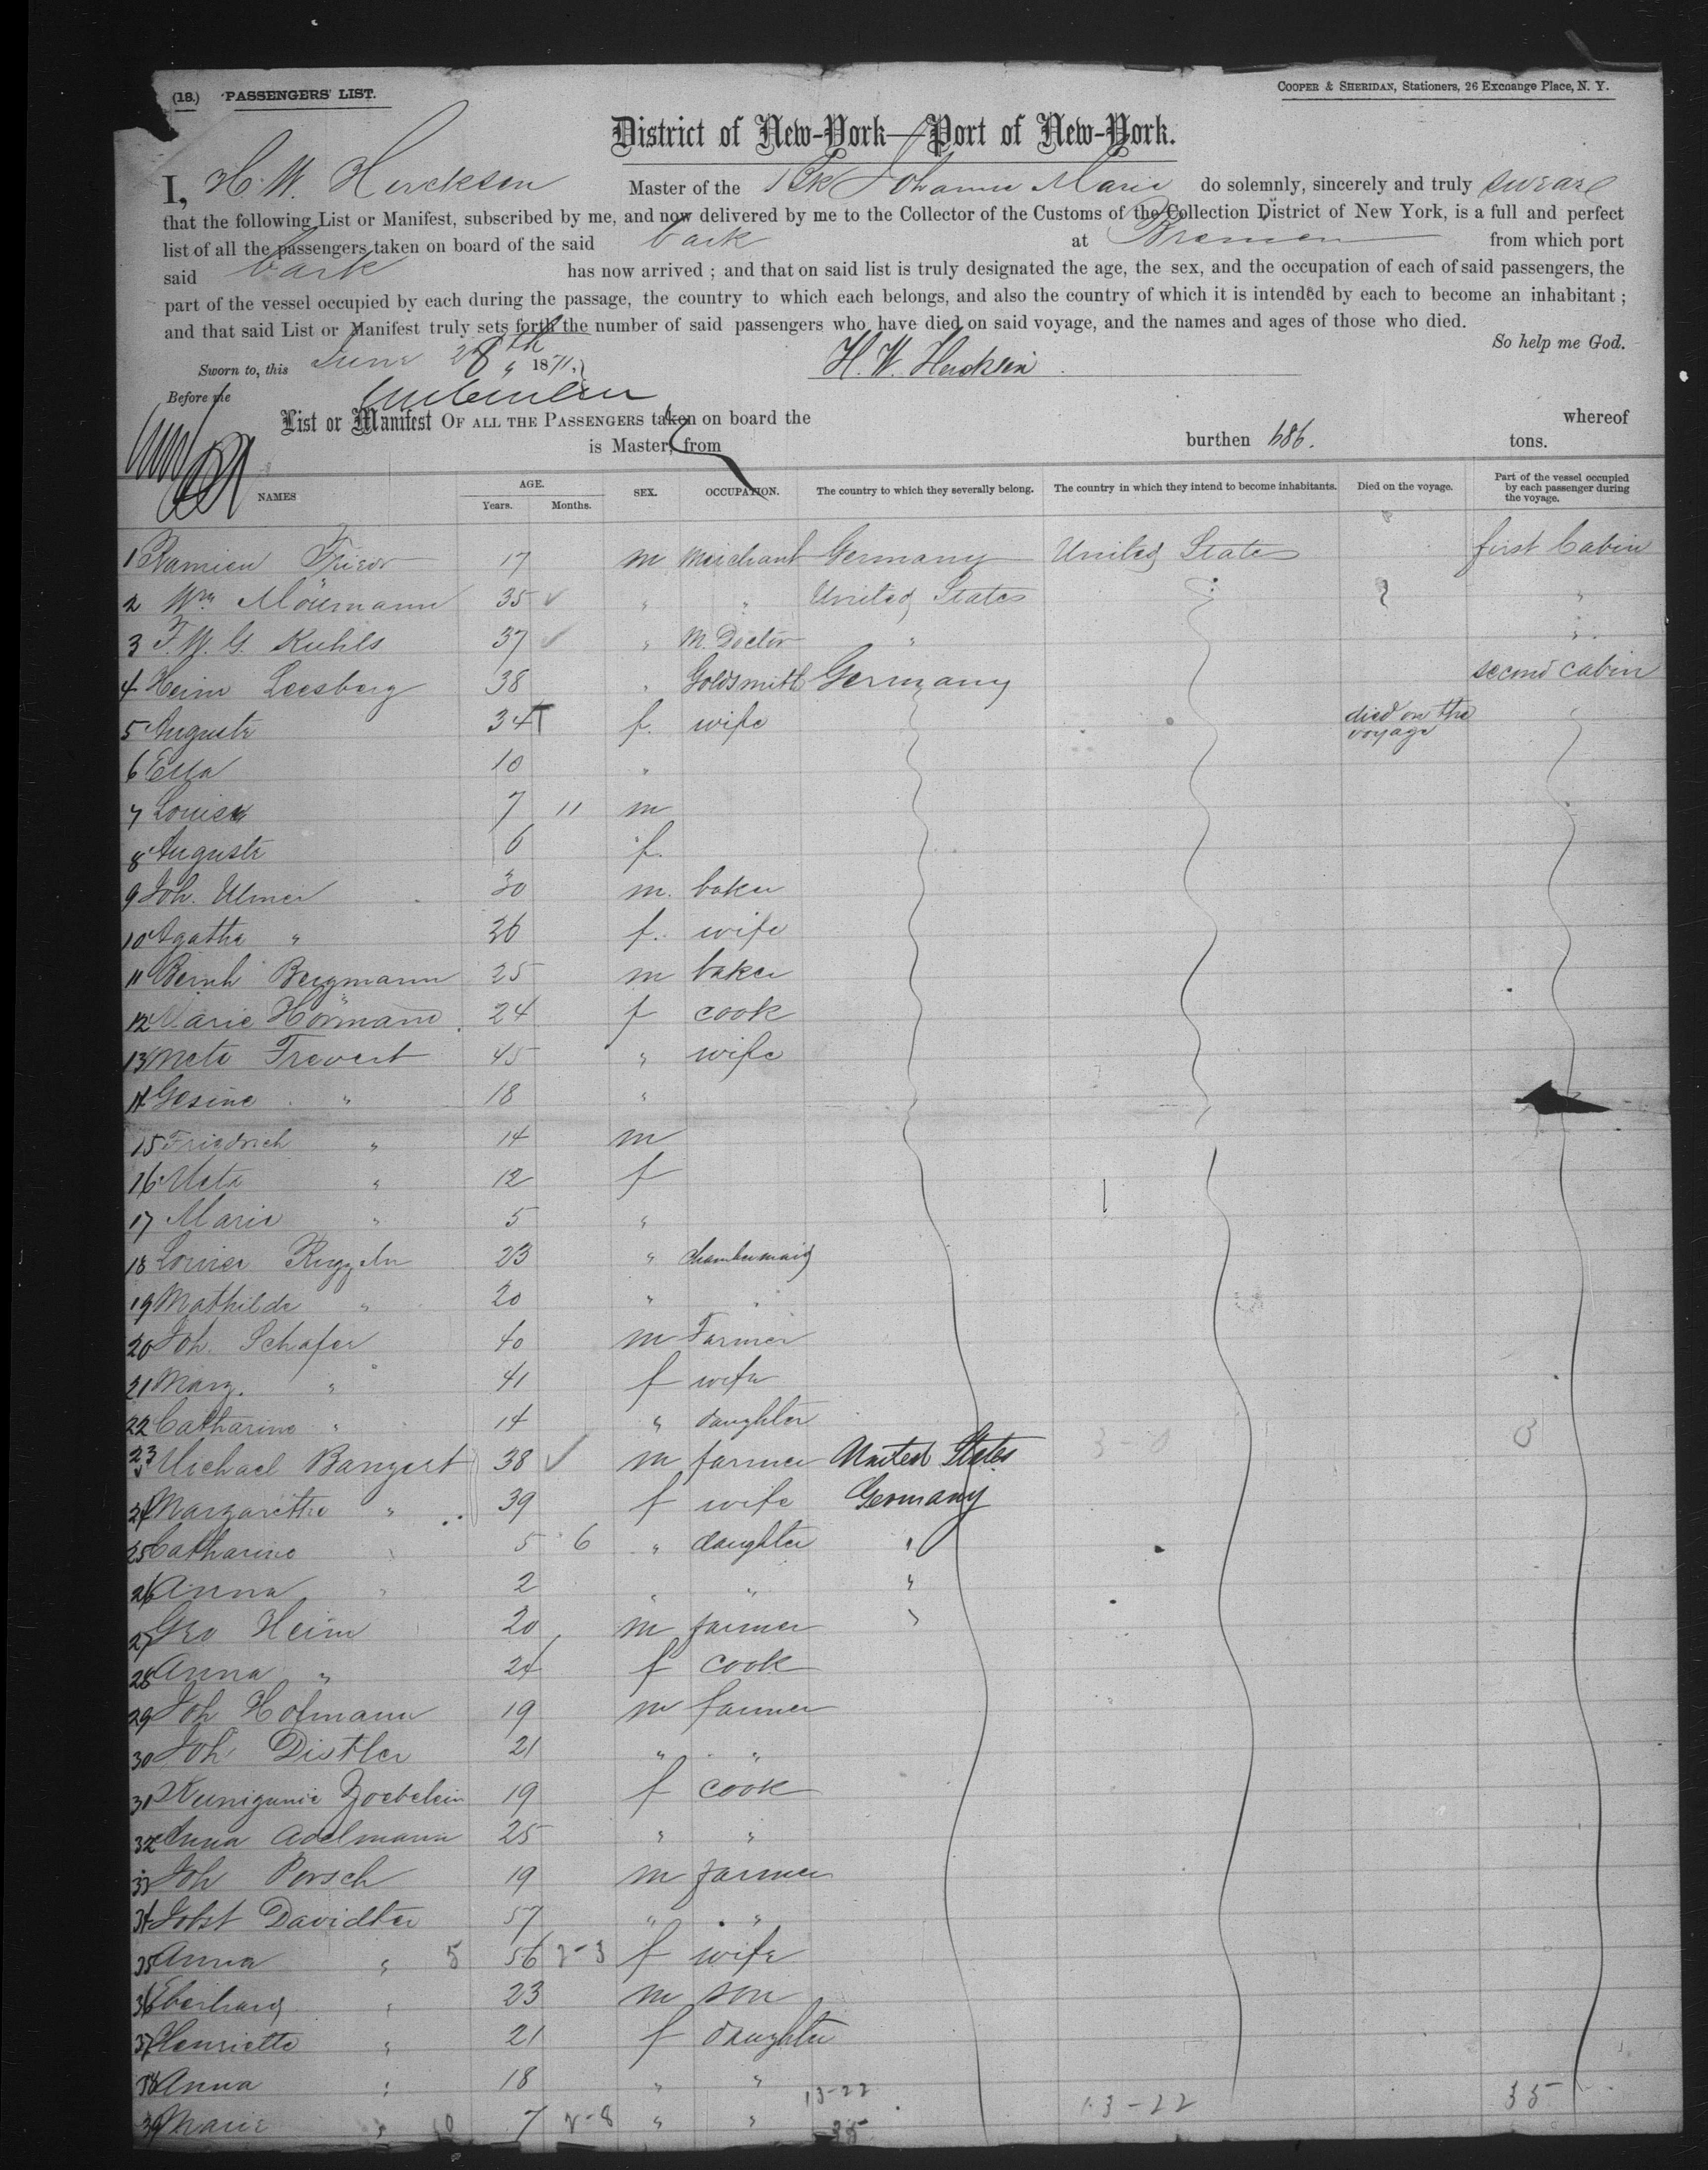 (18.) PASSENGERS' LIST.
COOPER & SHERIDAN, Stationers, 26 Exchange Place, N. Y.
District of New-York—Port of New-York.
I, H. W. Hercksen Master of the Bk Johanne Marie do solemnly, sincerely and truly swear
that the following List or Manifest, subscribed by me, and now delivered by me to the Collector of the Customs of the Collection District of New York, is a full and perfect
list of all the passengers taken on board of the said bark at Bremen from which port
said bark has now arrived ; and that on said list is truly designated the age, the sex, and the occupation of each of said passengers, the
part of the vessel occupied by each during the passage, the country to which each belongs, and also the country of which it is intended by each to become an inhabitant ;
and that said List or Manifest truly sets forth the number of said passengers who have died on said voyage, and the names and ages of those who died.
So help me God.
Sworn to, this June 28th 1871. H. W. Hercksen
Before me
List or Manifest OF ALL THE PASSENGERS taken on board the whereof
is Master, from burthen 686. tons.
NAMES AGE. Years. Months. SEX. OCCUPATION. The country to which they severally belong. The country in which they intend to become inhabitants. Died on the voyage. Part of the vessel occupied by each passenger during the voyage.
1 17 m Merchant Germany United States first Cabin
2 Wm 35 " " United States "
3 F. W. G. Kuhls 37 " M. Doctor " "
4 Heinr Leesberg 38 " Goldsmith Germany second cabin
5 Auguste 34 f. wife died on the voyage
6 Ella 10 "
7 Louis 7 11 m
8 Auguste 6 f.
9 Joh. Ulmer 30 m. baker
10 Agathe " 26 f. wife
11 Bernh Bergmann 25 m baker
12 Marie Hörmann 24 f cook
13 Meta Frevert 45 " wife
14 Gesine " 18 "
15 Friedrich " 14 m
16 Meta " 12 f
17 Marie " 5 "
18 Louise 23 " Chambermaid
19 Mathilde " 20 " "
20 Joh. Schafer 40 m Farmer
21 Marg. " 41 f wife
22 Catharine " 14 " daughter
23 Michael Bangert 38 m farmer United States
24 Margarethe " 39 f wife Germany
25 Catharine " 5 6 " daughter "
26 Anna " 2 " " "
27 Geo Heim 20 m farmer "
28 Anna " 24 f cook
29 Joh Hofmann 19 m farmer
30 Joh Distler 21 " "
31 Kunigunde Zoebelein 19 f cook
32 Anna Adelmann 25 " "
33 Joh Porsch 19 m farmer
34 Jobst Davidter 57 " "
35 Anna " 56 f wife
36 Eberhard " 23 m son
37 Henriette " 21 f daughter
38 Anna " 18 " "
13-22 13-22 35
39 Marie " 7 " " 35